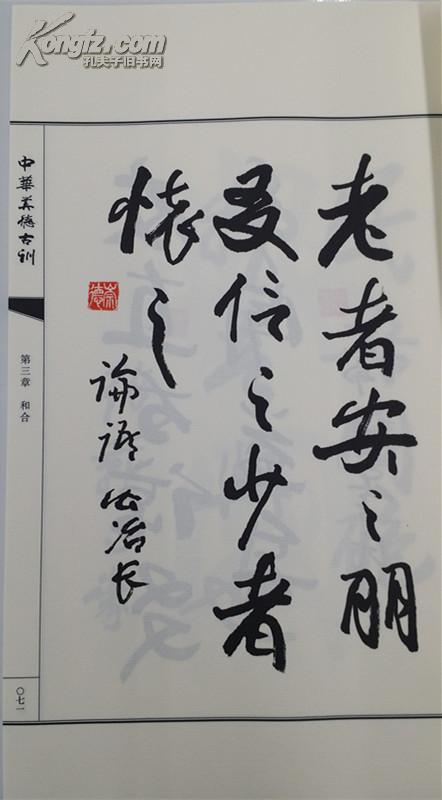 Kongfz.com
孔夫子旧书网
老者安之朋
友信之少者
怀之
论语公冶长
崇德
中華美德古训
第三章 和合
〇七一